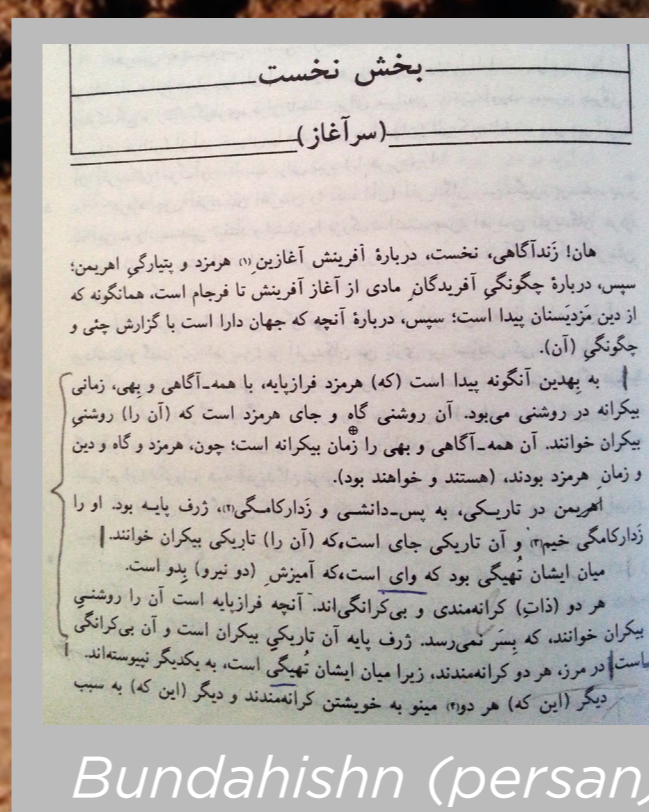 بخش نخست
(سرآغاز)
هان! زَندآگاهی، نخست، دربارهٔ آفرینش آغازین(۱) هرمزد و پتیارگیِ اهریمن؛
سپس، دربارهٔ چگونگیِ آفریدگانِ مادی از آغاز آفرینش تا فرجام است، همانگونه که
از دین مَزدیَسنان پیدا است؛ سپس، دربارهٔ آنچه که جهان دارا است با گزارش چئی و
چگونگیِ (آن).
به بِهدین آنگونه پیدا است (که) هرمزد فرازپایه، با همه‌ـآگاهی و بِهی، زمانی
بیکرانه در روشنی می‌بود. آن روشنی گاه و جای هرمزد است که (آن را) روشنیِ
بیکران خوانند. آن همه‌ـآگاهی و بهی را زمان بیکرانه است؛ چون، هرمزد و گاه و دین
و زمانِ هرمزد بودند، (هستند و خواهند بود).
اهریمن در تاریـکی، به پس‌ـدانشـی و زَدارکامـگی(۲)، ژرف پایـه بود. او را
زَدارکامگی خیم(۳) و آن تاریکی جای است،که (آن را) تاریکی بیکران خوانند.
میان ایشان تُهیگی بود که وای است،که آمیزشِ (دو نیرو) بِدو است.
هر دو (ذاتِ) کرانه‌مندی و بی‌کرانگی‌اند. آنچه فرازپایه است آن را روشنـیِ
بیکران خوانند، که بِسَر نمی‌رسد. ژرف پایه آن تاریکیِ بیکران است و آن بی‌کرانگی
است در مرز، هر دو کرانه‌مندند، زیرا میان ایشان تُهیگی است، به یکدیگر نپیوسته‌اند.
دیگر (این که) هر دو(۴) مینو به خویشتن کرانه‌مندند و دیگر (این که) به سبب
Bundahishn (persan)